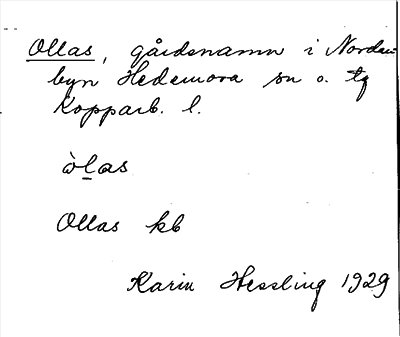 Ollas, gårdsnamn i Norden-
byn Hedemora sn o. tg
Kopparb. l.
òlas
Ollas kb
Karin Hessling 1929